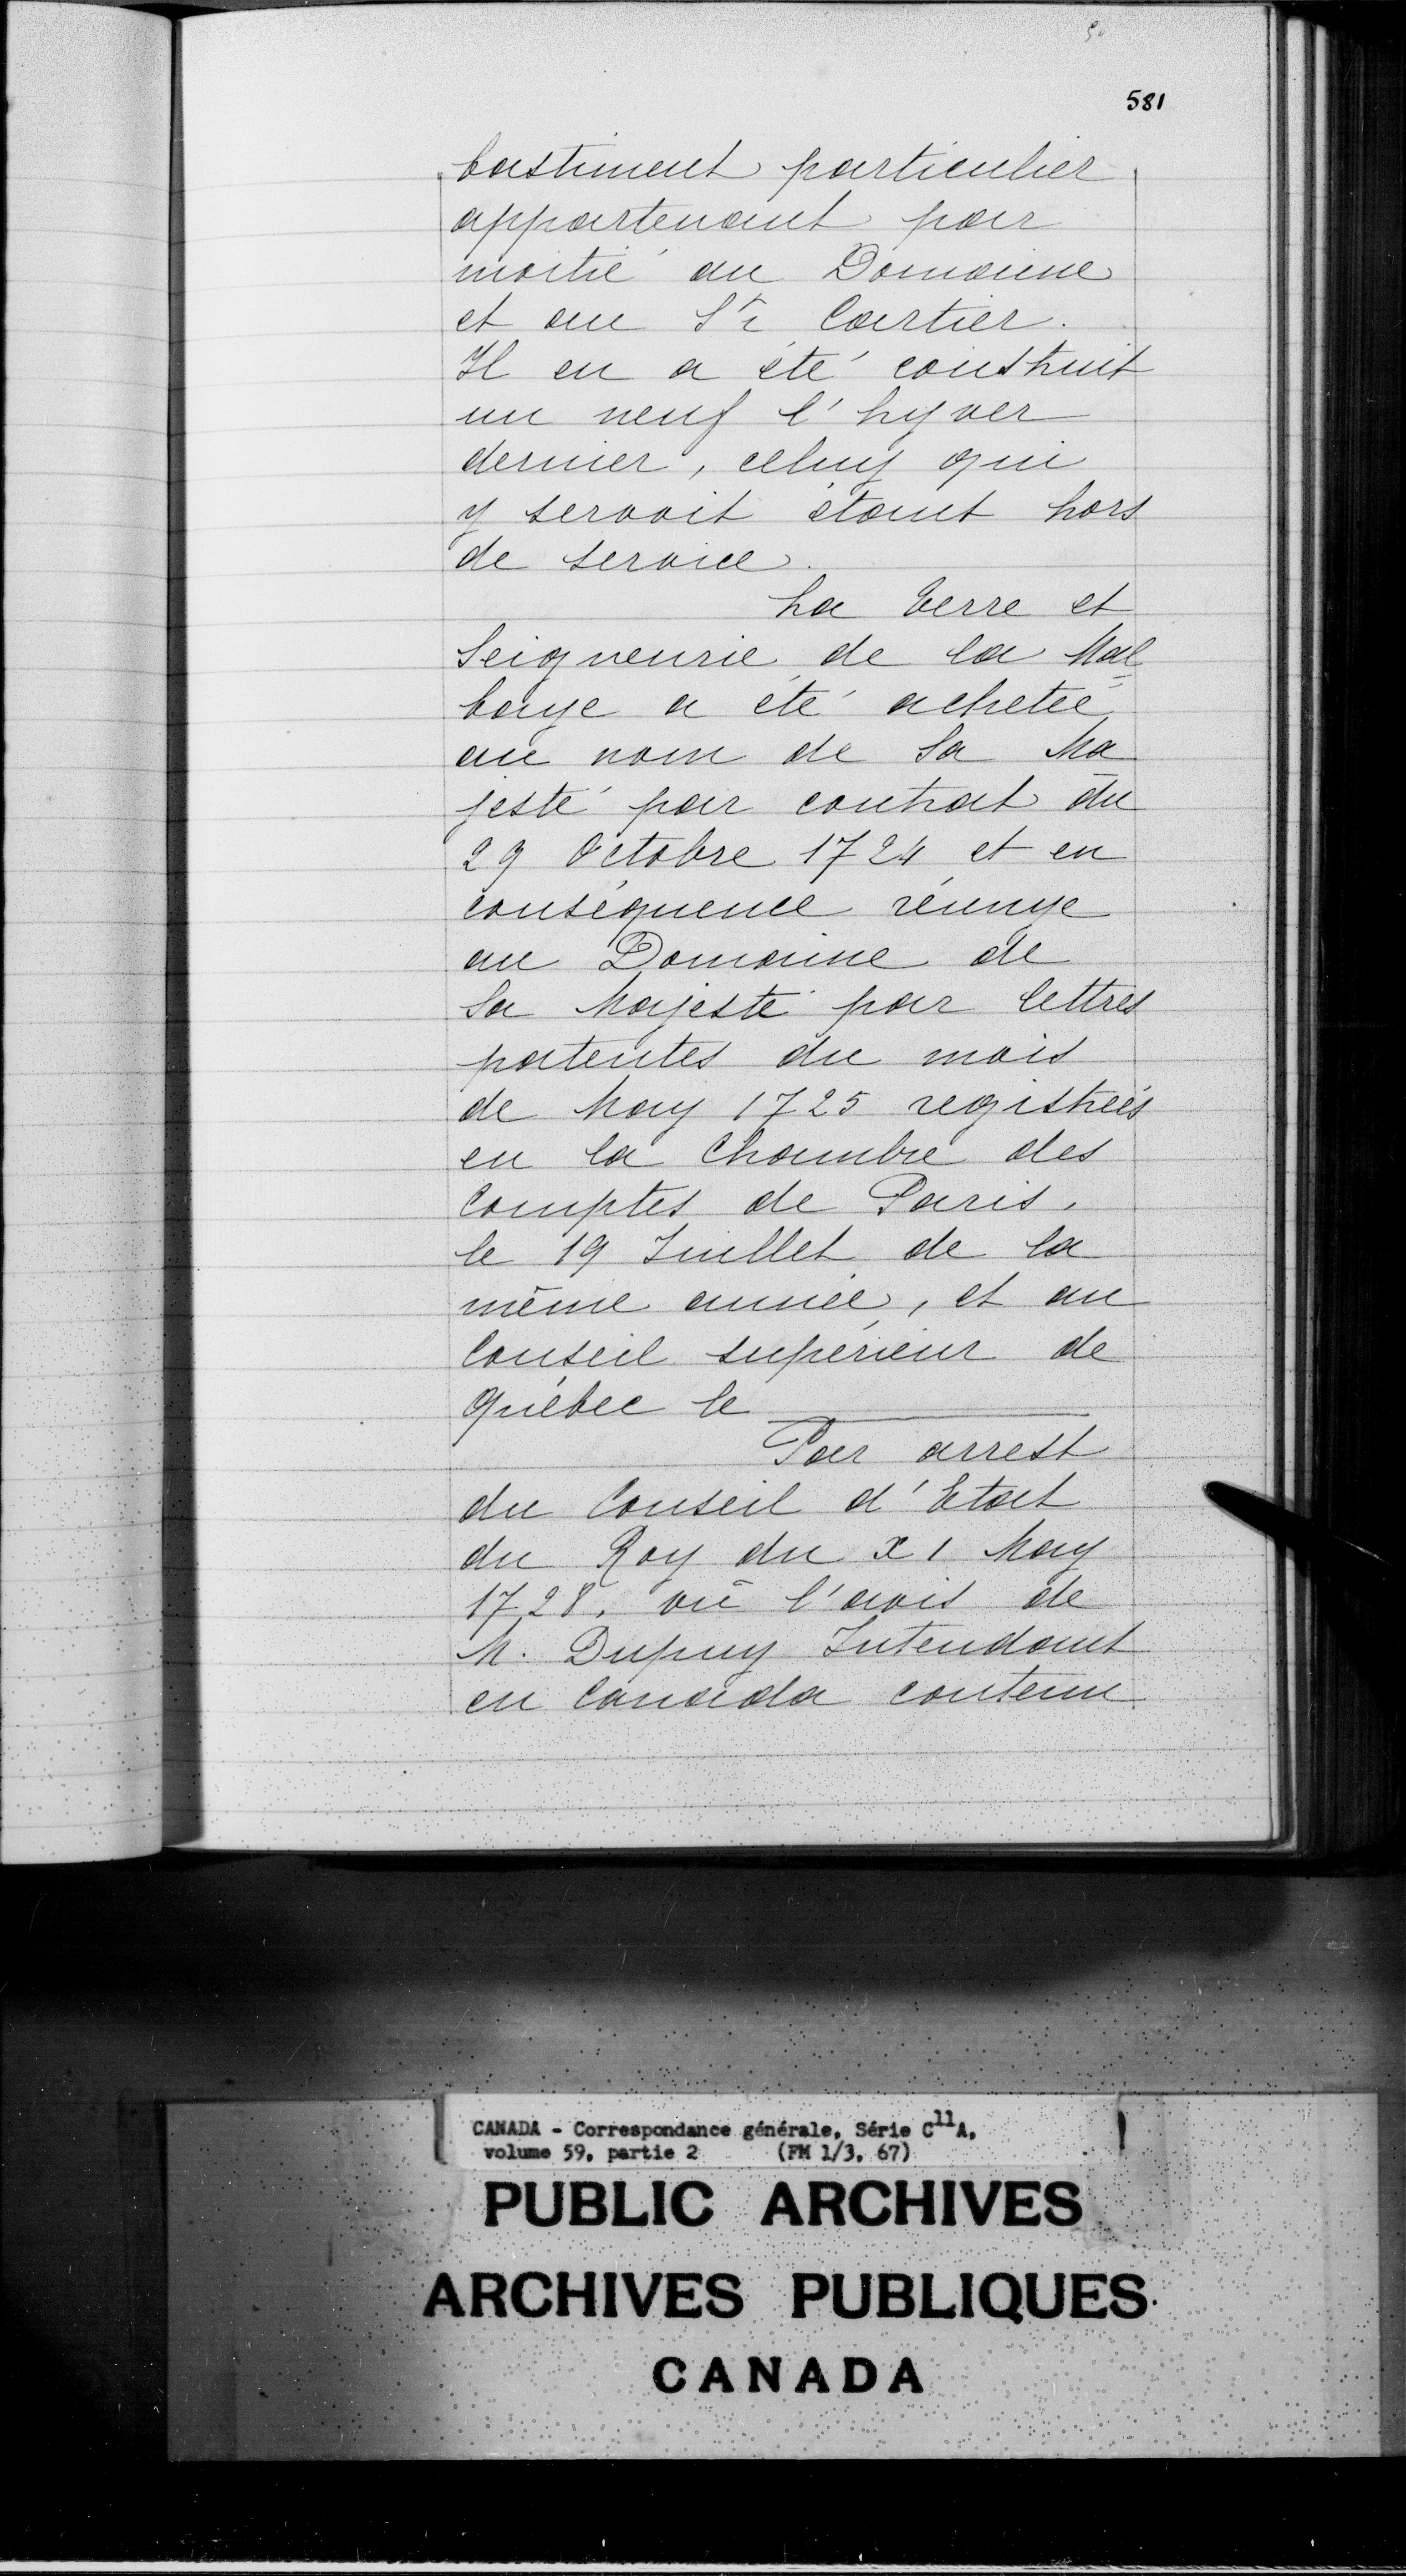 581
bastiment particulier
appartenant par
moitié au Domaine
et au Sr. Cartier.
Il en a été construit
un neuf l'hyver
dernier, celuy qui
y servoit étant hors
de service.
La terre et
Seigneurie de la Mal
baye a été achetée
au nom de Sa Ma
jesté par contrat du
29 Octobre 1724 et en
conséquence réunye
au Domaine de
Sa Majesté par lettres
patentes du mois
de May 1725 registrées
en la Chambre des
Comptes de Paris,
le 19 Juillet de la
même année, et au
Conseil supérieur de
Québec le
Par arrest
du Conseil d'Etat
du Roy du x1 May
1728, vû l'avis de
M. Dupuy Intendant
en Canada contenu
CANADA - Correspondance générale, Série C11A,
volume 59, partie 2 (FM 1/3, 67)
PUBLIC ARCHIVES
ARCHIVES PUBLIQUES
CANADA